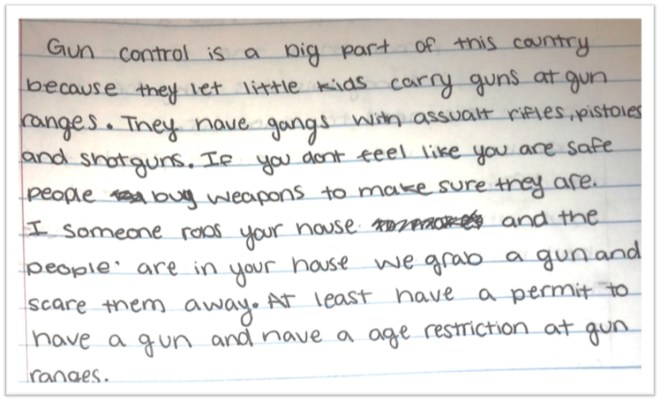 Gun control is a big part of this country
because they let little kids carry guns at gun
ranges. They have gangs with assualt rifles, pistoles
and shotguns. If you dont feel like you are safe
people buy weapons to make sure they are.
I someone robs your house and the
people are in your house we grab a gun and
scare them away. At least have a permit to
have a gun and have a age restriction at gun
ranges.